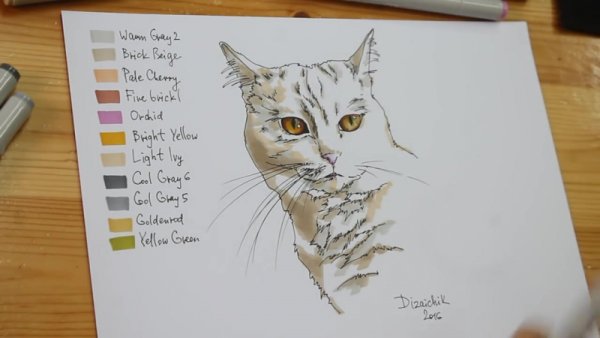 Warm Gray 2
Brick Beige
Pale Cherry
Fine brick1
Orchid
Bright Yellow
Light Ivy
Cool Gray 6
Cool Gray 5
Goldenrod
Yellow Green
Dizaichik
2016